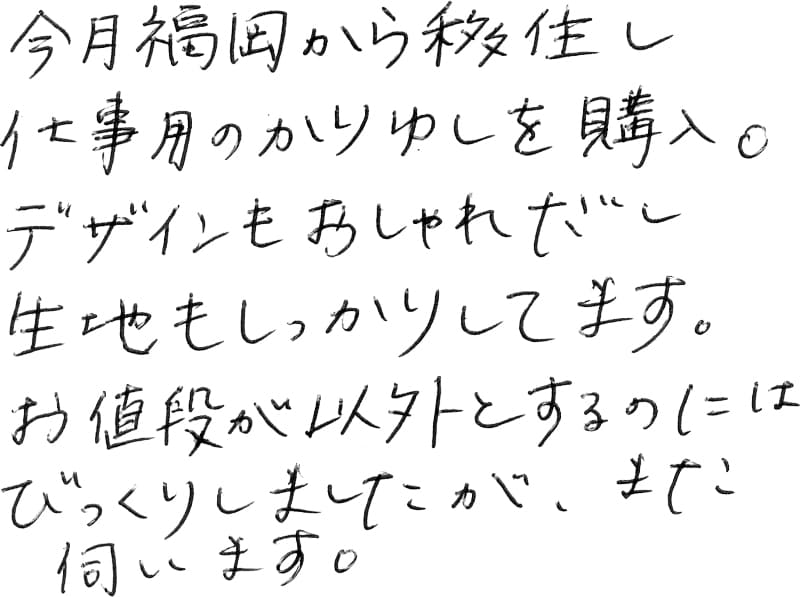 今月福岡から移住し
仕事用のかりゆしを購入。
デザインもおしゃれだし
生地もしっかりしてます。
お値段が以外とするのには
びっくりしましたが、また
伺います。